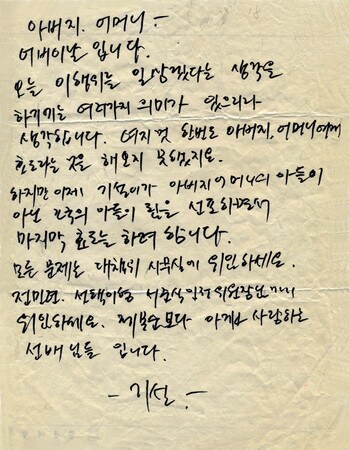 아버지. 어머니 -
어버이날 입니다.
오늘 이행위는 일상적이다는 생각을
하기에는 여러가지 의미가 있으리라
생각합니다. 여지껏 한번도 아버지, 어머니에게
효도라는 것을 해오지 못했지요.
하지만 이제 기설이가 아버지 어머니의 아들이
아닌 조국의 아들이 됨을 선포하면서
마지막 효도를 하려 합니다.
모든 문제는 대책위 사무실에 위임하세요.
전민련. 선배이신 서준식인권위원장님
위임하세요. 제 목숨보다 아끼고 사랑하는
선배님들 입니다.
- 기설. -